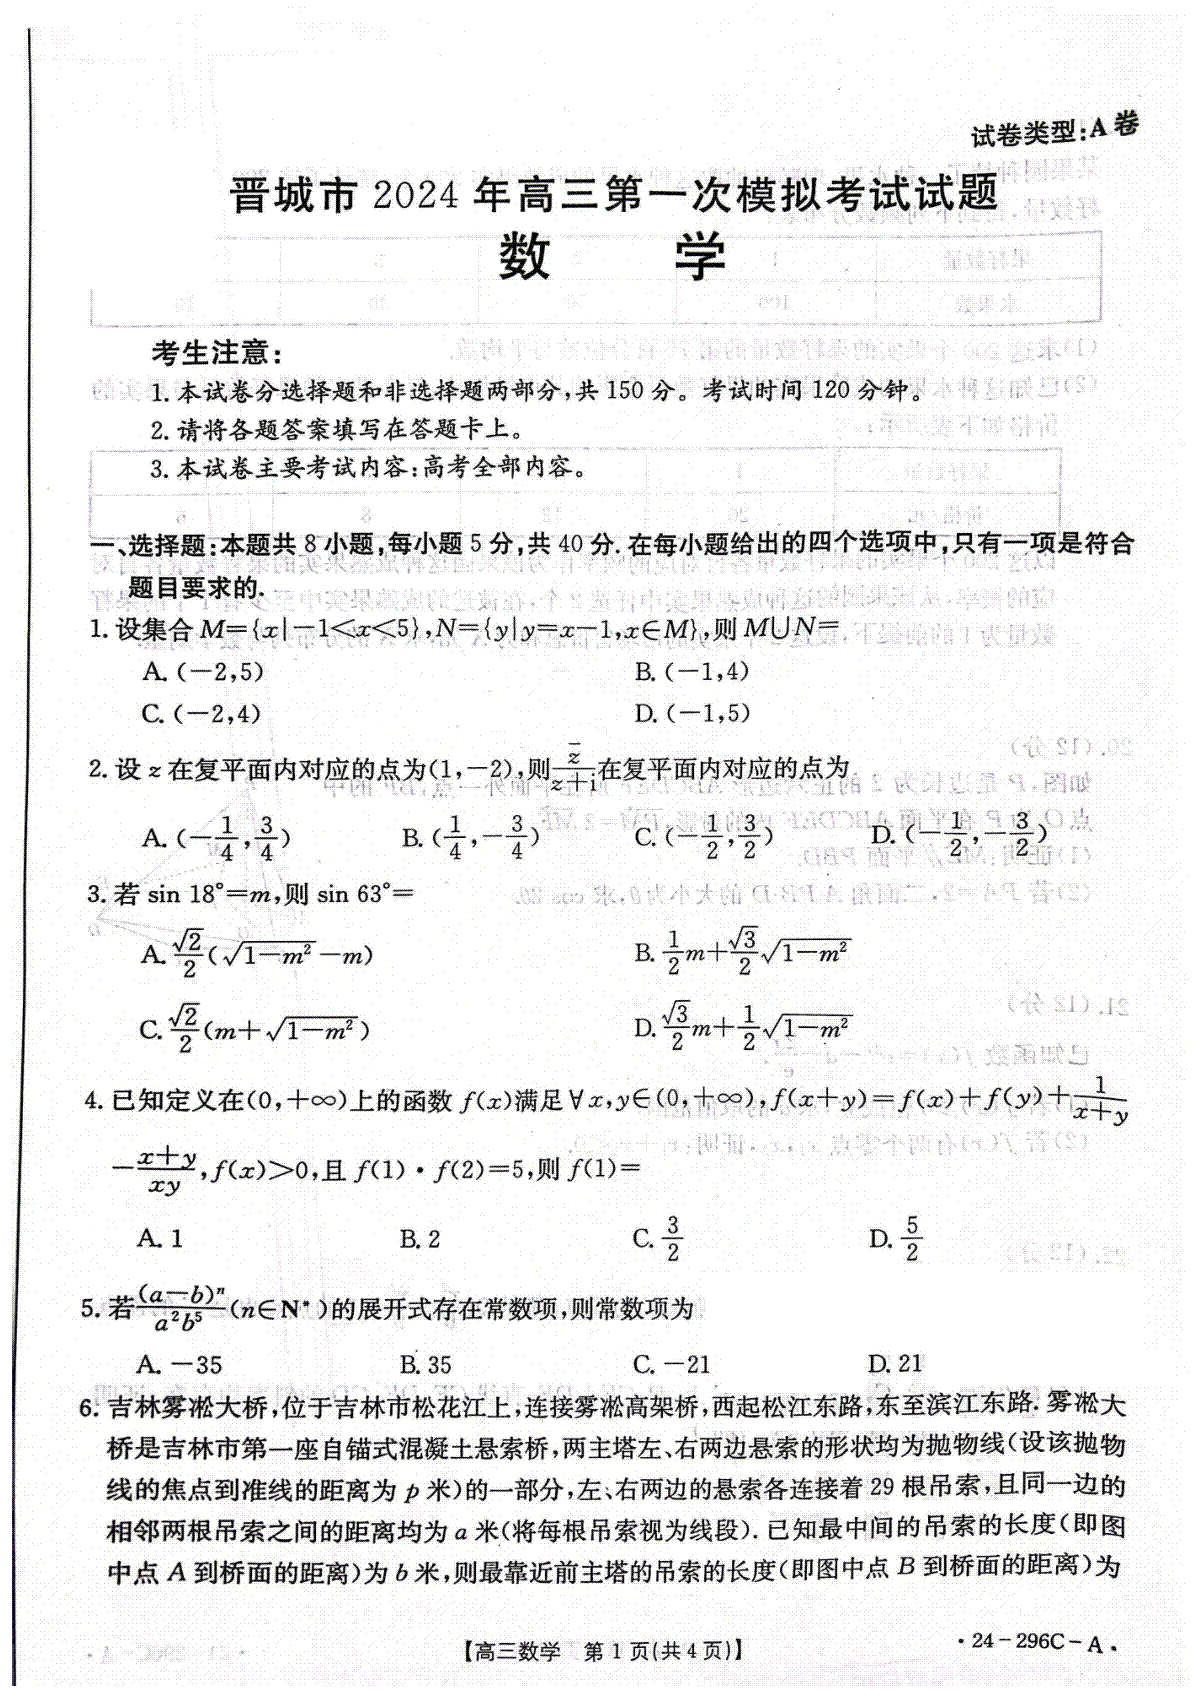 试卷类型:A卷
晋城市 2024 年高三第一次模拟考试试题
数 学
考生注意:
1.本试卷分选择题和非选择题两部分,共 150 分。考试时间 120 分钟。
2.请将各题答案填写在答题卡上。
3.本试卷主要考试内容:高考全部内容。
一、选择题:本题共 8 小题,每小题 5 分,共 40 分.在每小题给出的四个选项中,只有一项是符合
题目要求的.
1.设集合 M={x|-1<x<5},N={y|y=x-1,x∈M},则 M∪N=
A.(-2,5) B.(-1,4)
C.(-2,4) D.(-1,5)
2.设 z 在复平面内对应的点为(1,-2),则 z̄/(z+i) 在复平面内对应的点为
A.(-1/4,3/4) B.(1/4,-3/4) C.(-1/2,3/2) D.(-1/2,-3/2)
3.若 sin 18°=m,则 sin 63°=
A.√2/2(√(1-m²)-m) B.1/2m+√3/2√(1-m²)
C.√2/2(m+√(1-m²)) D.√3/2m+1/2√(1-m²)
4.已知定义在(0,+∞)上的函数 f(x)满足∀x,y∈(0,+∞),f(x+y)=f(x)+f(y)+1/(x+y)
-(x+y)/xy,f(x)>0,且 f(1)·f(2)=5,则 f(1)=
A.1 B.2 C.3/2 D.5/2
5.若(a-b)ⁿ/a²b⁵(n∈N*)的展开式存在常数项,则常数项为
A.-35 B.35 C.-21 D.21
6.吉林雾凇大桥,位于吉林市松花江上,连接雾凇高架桥,西起松江东路,东至滨江东路.雾凇大
桥是吉林市第一座自锚式混凝土悬索桥,两主塔左、右两边悬索的形状均为抛物线(设该抛物
线的焦点到准线的距离为 p 米)的一部分,左、右两边的悬索各连接着 29 根吊索,且同一边的
相邻两根吊索之间的距离均为 a 米(将每根吊索视为线段).已知最中间的吊索的长度(即图
中点 A 到桥面的距离)为 b 米,则最靠近前主塔的吊索的长度(即图中点 B 到桥面的距离)为
【高三数学 第 1 页(共 4 页)】
·24-296C-A·